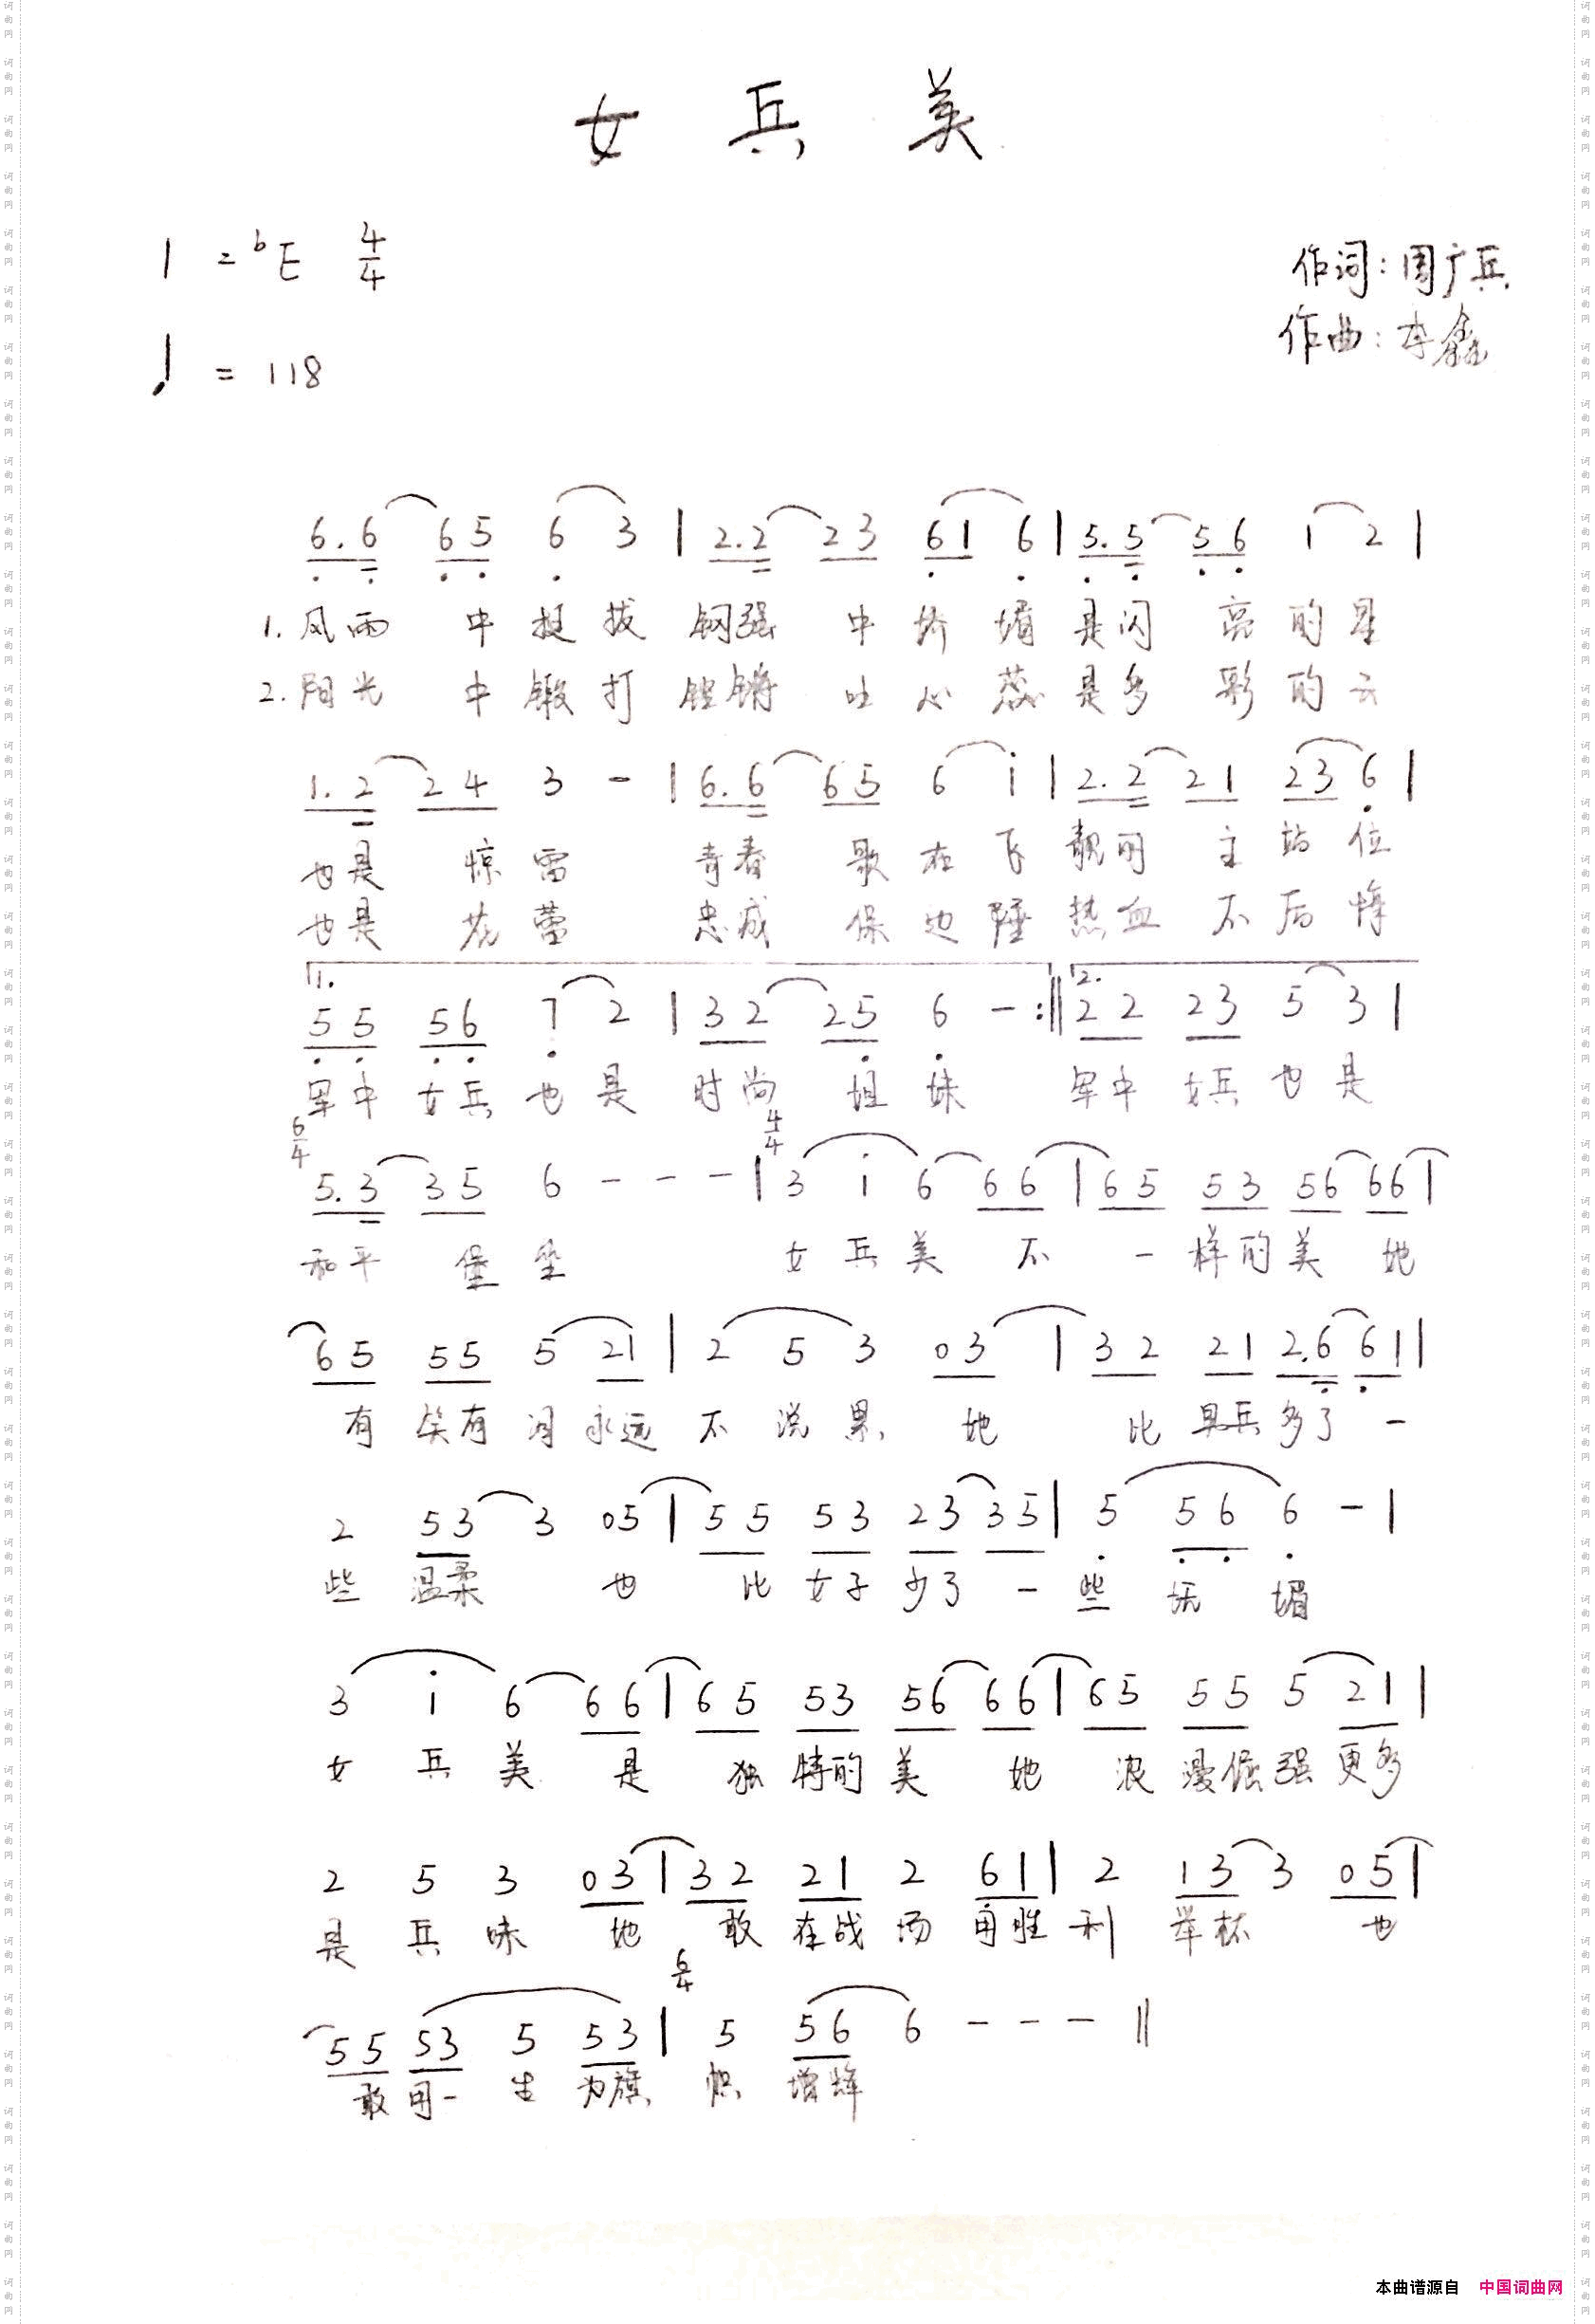 女兵美
1=bE 4/4
作词:周广兵
作曲:李鑫
♩=118
6.6 65 6 3 | 2.2 23 61 6 | 5.5 56 1 2 |
1.风雨 中挺拔 钢强 中娇媚 是闪亮的星
2.阳光 中锻打 铿锵 吐心蕊 是多彩的云
1.2 24 3 - | 6.6 65 6 i | 2.2 21 23 6 |
也是惊雷 青春歌在飞 靓丽主站位
也是花蕾 忠诚保边陲 热血不后悔
1. 2.
55 56 7 2 | 32 25 6 - :|| 22 23 5 3 |
军中女兵也是 时尚姐妹 军中女兵也是
6/4 4/4
5.3 35 6 - - - | 3 i 6 66 | 65 53 56 66 |
和平堡垒 女兵美 不一样的美 她
65 55 5 21 | 2 5 3 03 | 32 21 2.6 61 |
有笑有泪永远 不说累 她 比男兵多了一
2 53 3 05 | 55 53 23 35 | 5 56 6 - |
些温柔 也 比女子少了一些妩媚
3 i 6 66 | 65 53 56 66 | 65 55 5 21 |
女兵美 是独特的美 她浪漫倔强更多
2 5 3 03 | 32 21 2 61 | 2 13 3 05 |
是兵味 她 敢在战场用胜利举杯 也
6/4
55 53 5 53 | 5 56 6 - - - ||
敢用一生为旗帜增辉
本曲谱源自 中国词曲网